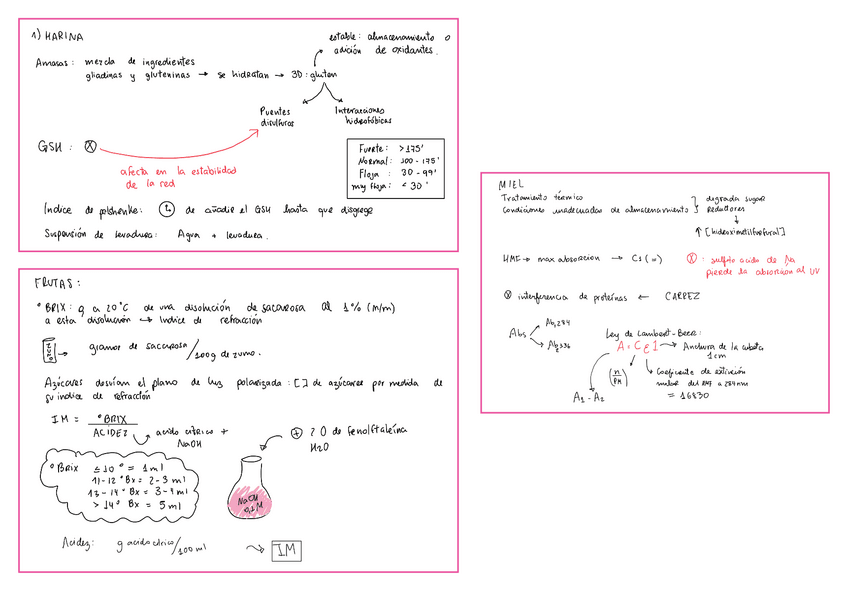 1) HARINA
estable: almacenamiento o
adición de oxidantes.
Amasas: mezcla de ingredientes
gliadinas y gluteninas → se hidratan → 3D: gluten
Puentes
disulfuros
Interacciones
hidrofóbicas
GSH: X
afecta en la estabilidad
de la red
Fuerte: >175'
Normal: 100-175'
Floja: 30-99'
muy floja: < 30'
Indice de pelshenke: de añadir el GSH hasta que disgrege
Suspensión de levadura: Agua + levadura.
FRUTAS:
°BRIX: g a 20°C de una disolución de sacarosa al 1% (m/m)
a esta disolución → Indice de refracción
ZUMO → gramos de sacarosa/100g de zumo.
Azúcares desvían el plano de luz polarizada: [ ] de azúcares por medida de
su indice de refracción
IM = °BRIX
ACIDEZ
acido cítrico +
NaOH
+ 20 de fenolftaleína
H2O
°Brix ≤10° = 1ml
11-12 °Bx = 2-3 ml
13-14° Bx = 3-4 ml
>14° Bx = 5ml
NaOH
0,1M
Acidez: g acido cítrico/100ml → IM
MIEL
Tratamiento térmico
Condiciones inadecuadas de almacenamiento } degrada sugar
reductores
↓
↑ [hidroximetilfurfural]
HMF → max absorcion → C1 (=)
X: sulfito acido de Na
pierde la absorción al UV
X interferencia de proteínas ← CARREZ
Abs
Ab284
Ab336
Ley de Lambert-Beer:
A = C ε l → Anchura de la cubeta
1cm
(n/PM)
Coeficiente de extinción
molar del HMF a 284nm
= 16830
A1 - A2